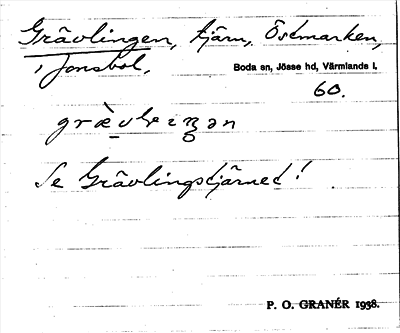 Grävlingen, tjärn, Östmarken,
i Jonsbol,
Boda sn, Jösse hd, Värmlands l.
60.
Se Grävlingstjärnet!
P. O. GRANÉR 1938.